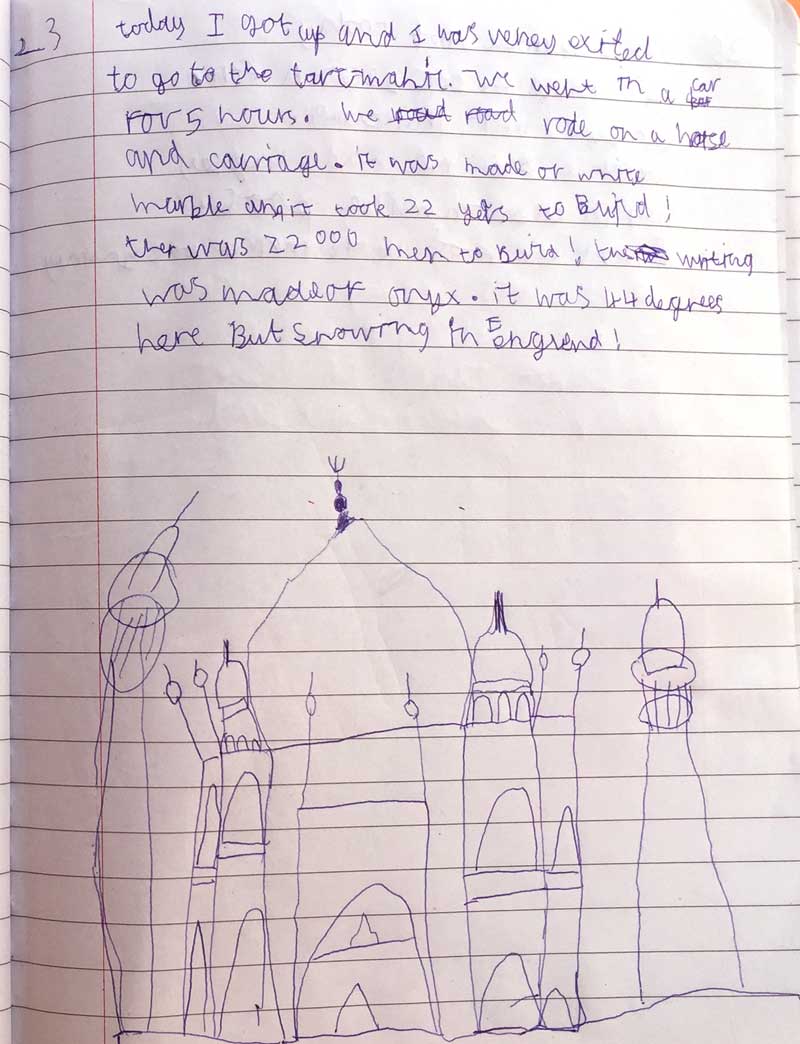 23
today I got up and I was verey exited
to go to the tartmahll. We went in a car
For 5 hours. We rode on a horse
and carriage. it was made of white
marble an it took 22 yers to Build!
ther was 22000 men to Build! the writing
was made of onyx. it was 44 degrees
here But Snowing in Englend!